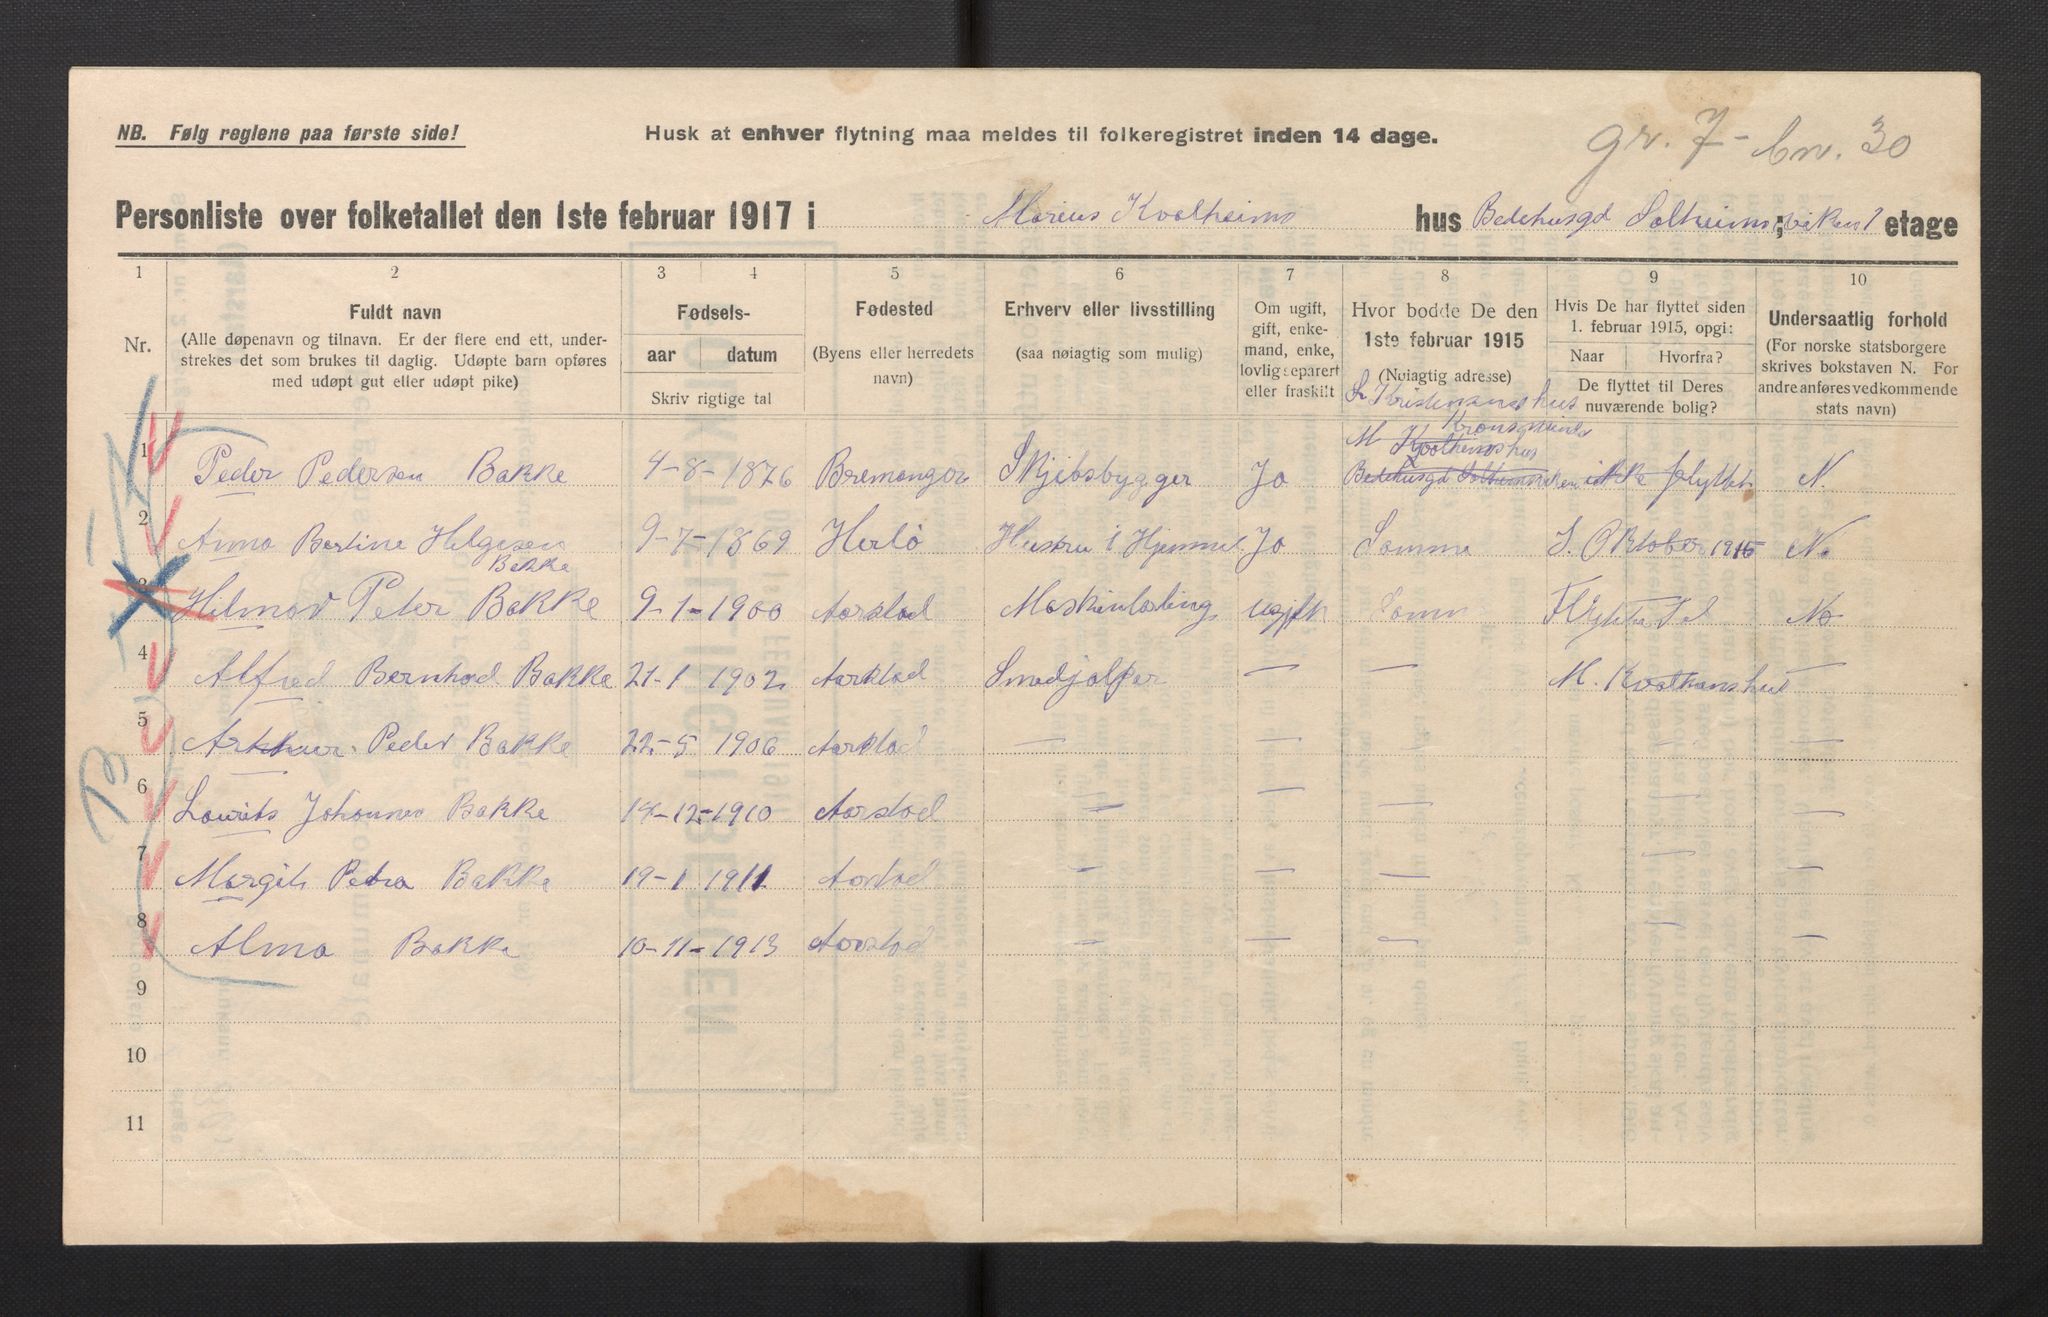 NB. Følg reglene paa første side!
Husk at enhver flytning maa meldes til folkeregistret inden 14 dage.
gr. 7 - bn. 30
Personliste over folketallet den 1ste februar 1917 i Marius Kvalheims hus Bedehusgd Solheimsviken 1 etage
1 2 3 4 5 6 7 8 9 10
Nr.
Fuldt navn
(Alle døpenavn og tilnavn. Er der flere end ett, under-
strekes det som brukes til daglig. Udøpte barn opføres
med udøpt gut eller udøpt pike)
Fødsels-
aar datum
Skriv rigtige tal
Fødested
(Byens eller herredets
navn)
Erhverv eller livsstilling
(saa nøiagtig som mulig)
Om ugift,
gift, enke-
mand, enke,
lovlig separert
eller fraskilt
Hvor bodde De den
1ste februar 1915
(Nøiagtig adresse)
Hvis De har flyttet siden
1. februar 1915, opgi:
Naar Hvorfra?
De flyttet til Deres
nuværende bolig?
Undersaatlig forhold
(For norske statsborgere
skrives bokstaven N. For
andre anføres vedkommende
stats navn)
Kristensens hus
M Kvalheims hus
1 Peder Pedersen Bakke 4-8-1876 Bremanger Skjibsbygger Jo Bedehusgd Solheimsviken ikke flyttet N.
2 Anna Bertine Helgesen 9-7-1869 Herlö Hustru i Hjemmet Jo Samme I. Oktober 1915 N
Bakke
3 Hilmar Peter Bakke 9-1-1900 Aarstad Maskinlærling ugift Samme Flytte Til N
4 Alfred Bernhard Bakke 21-1 1902 Aarstad Smedjalper — — M. Kvalheims hus —
5 Arthur Peder Bakke 22-5 1906 Aarstad — — — — —
6 Laurits Johannes Bakke 14-12-1910 Aarstad — — — — —
7 Margit Petra Bakke 19-1 1911 Aarstad - — — — —
8 Alma Bakke 10-11-1913 Aarstad - — — — —
9
10
11
B